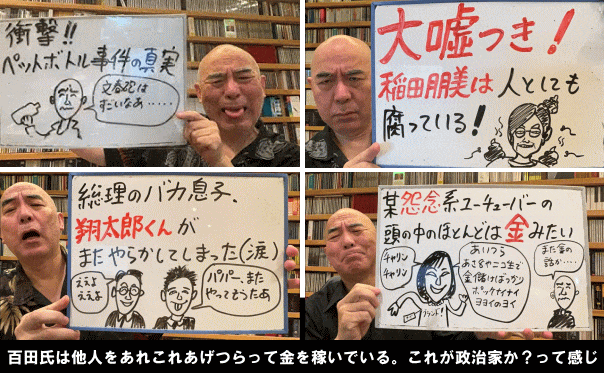 衝撃!!
ペットボトル事件の真実
文春砲は
すごいなあ……
大嘘つき!
稲田朋美は人としても
腐っている!
総理のバカ息子、
翔太郎くんが
またやらかしてしまった(涙)
ええよ
ええよ
パパー、また
やってもうたあ
某怨念系ユーチューバーの
頭の中のほとんどは金みたい
チャリン
チャリン
あいつら
あさ8やニコ生で
金儲けばっかり
ホンマナイナイ
ヨヨイのヨイ
また金の
話か……
ブランド!
百田氏は他人をあれこれあげつらって金を稼いでいる。これが政治家か?って感じ